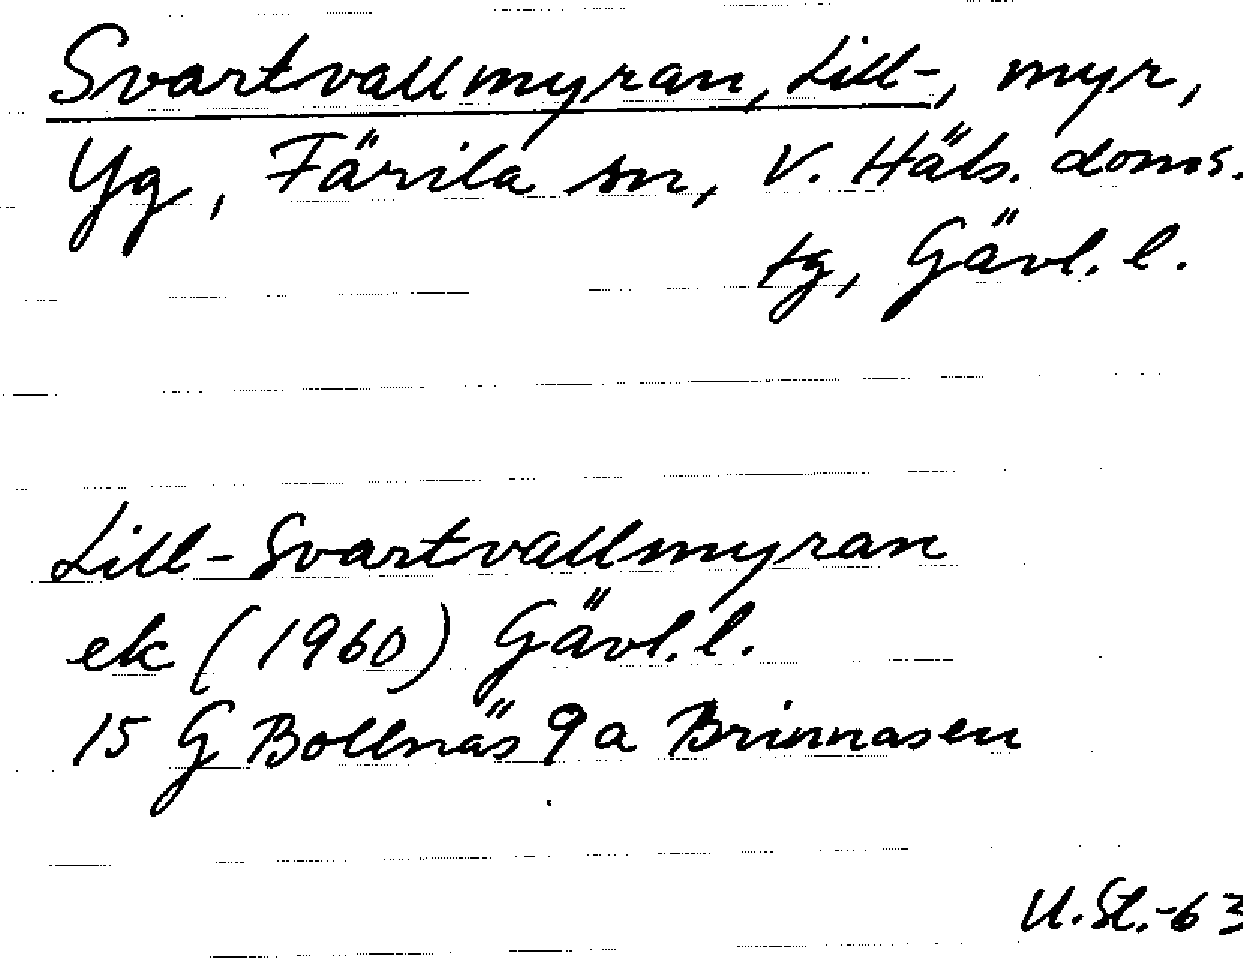 Svartvallmyran, Lill-, myr,
Yg, Färila sn, V. Häls. doms.
tg, Gävl. l.
Lill-Svartvallmyran
ek (1960) Gävl. l.
15 G Bollnäs 9a Brinnasen
U. St. -63